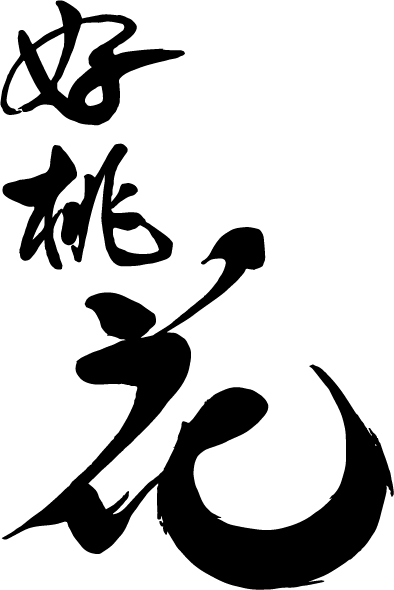 好桃花